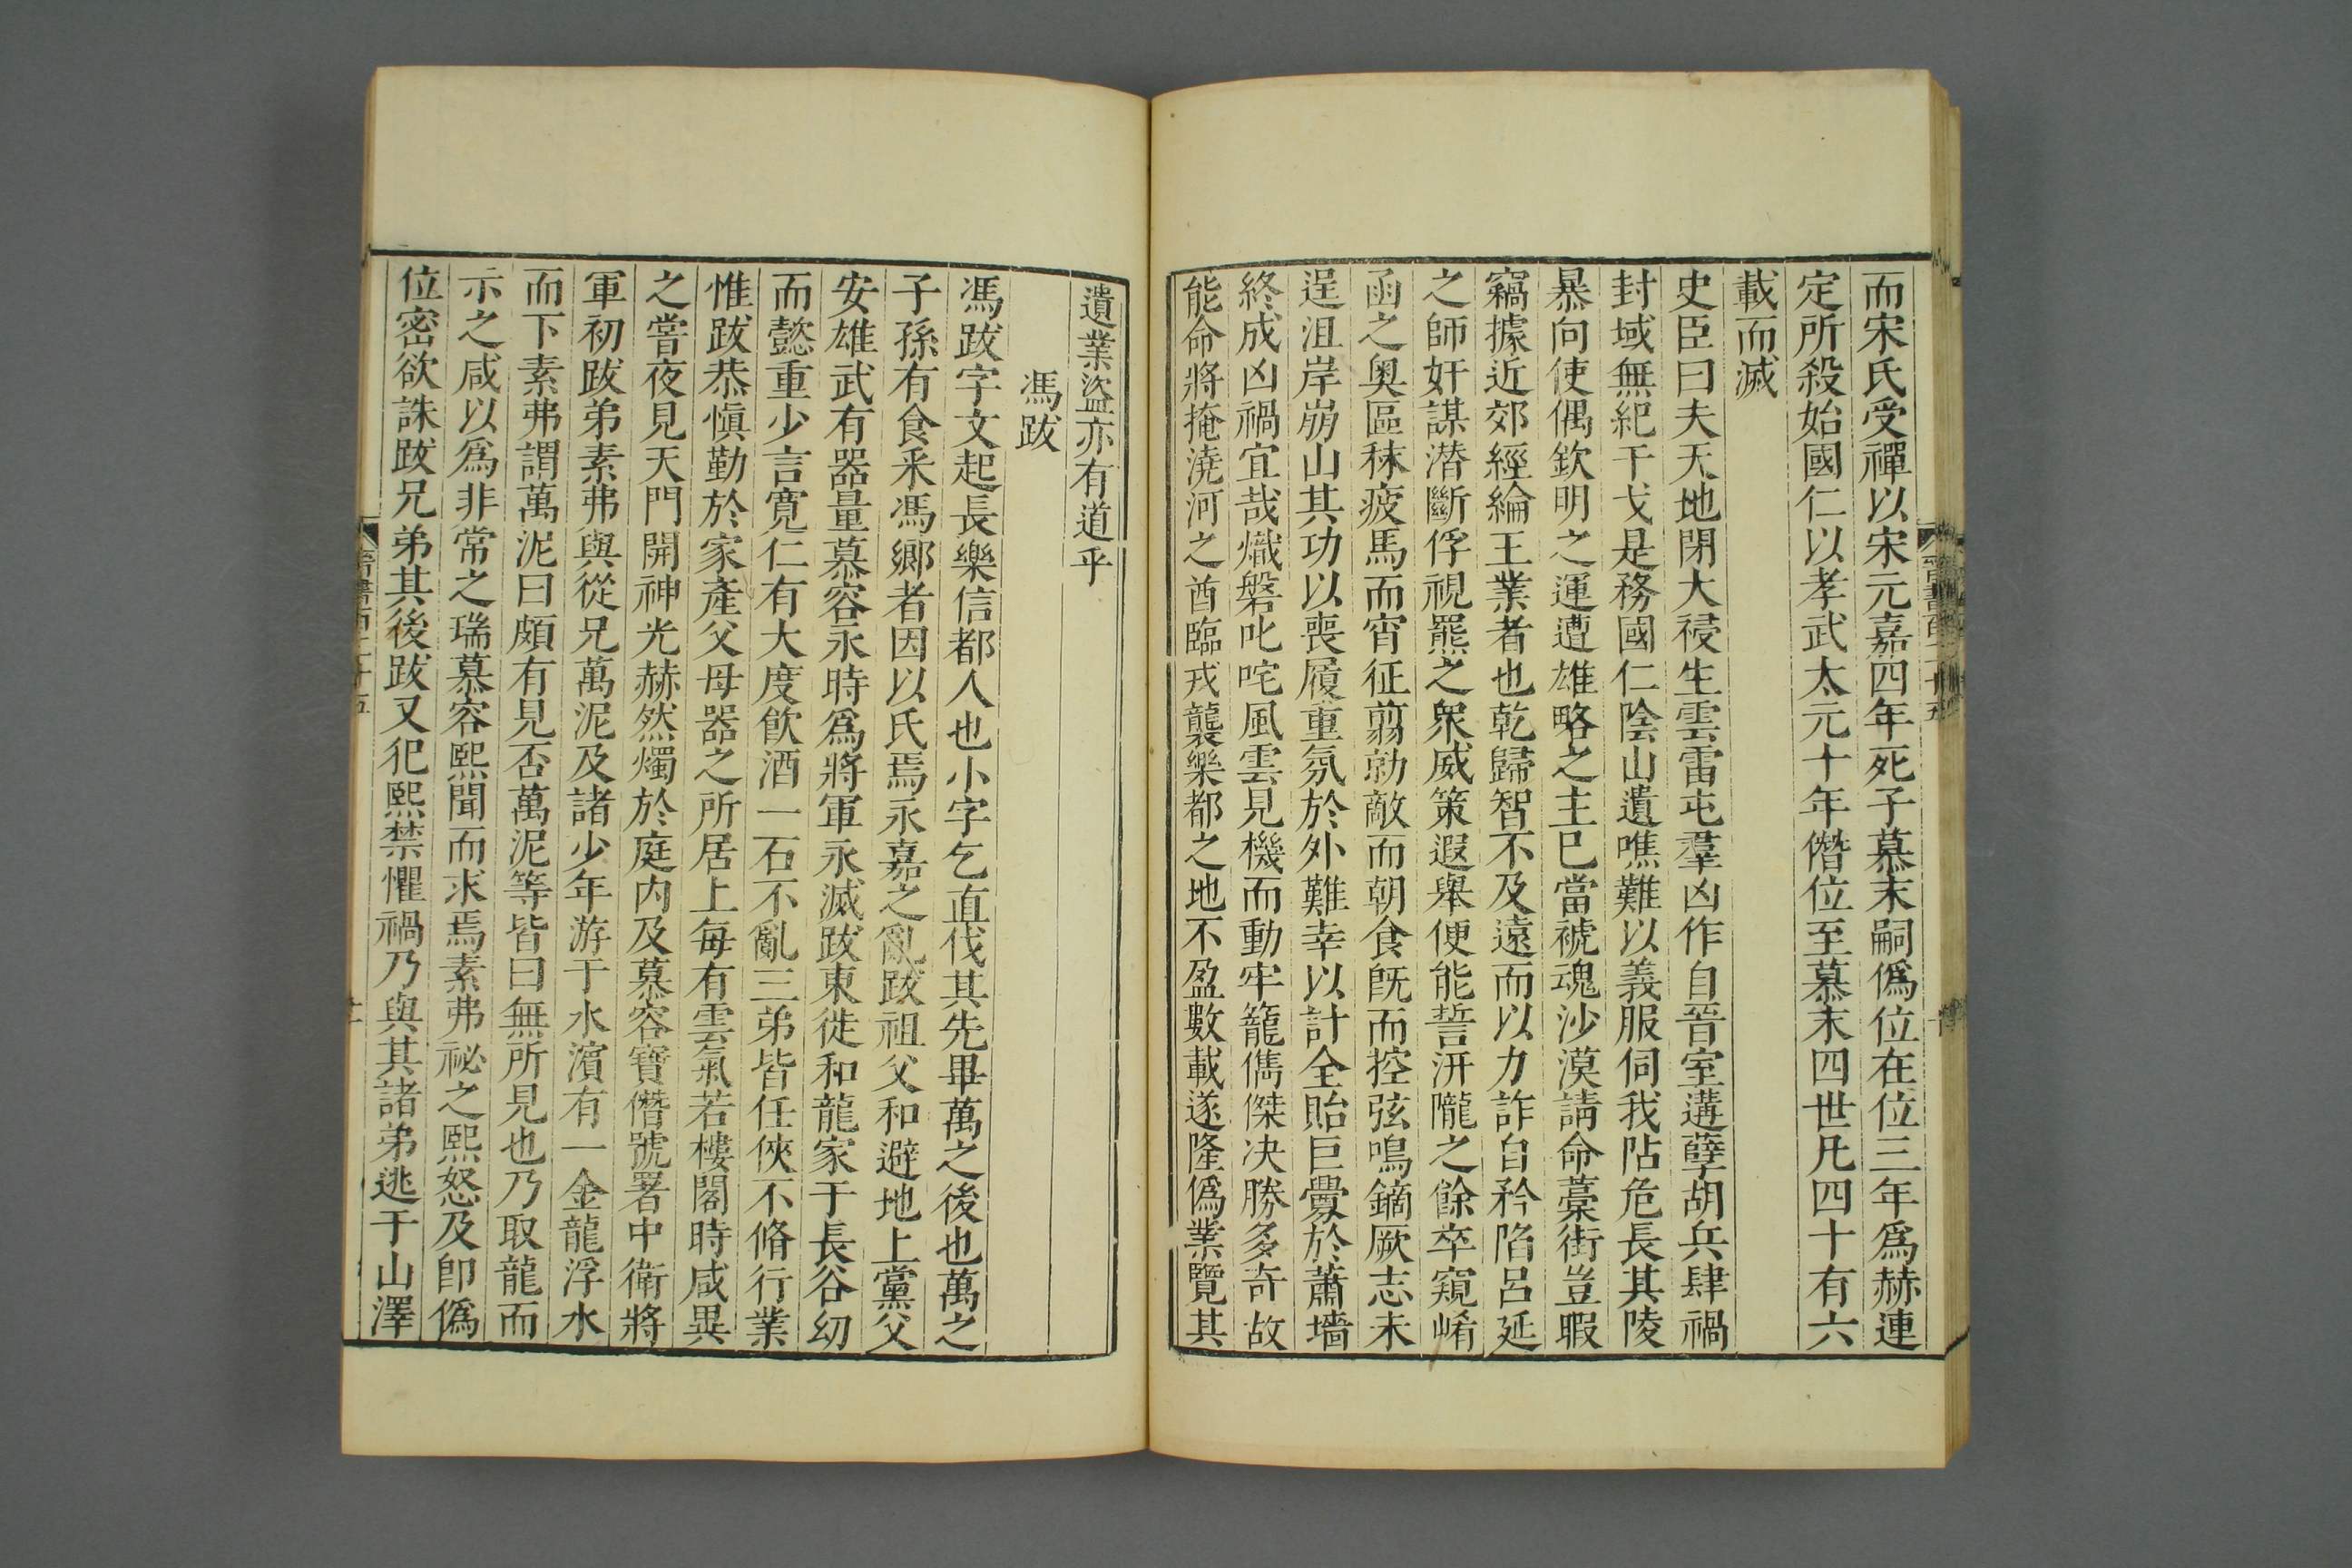 而宋氏受禪以宋元嘉四年死子慕末嗣僞位在位三年爲赫連
定所殺始國仁以孝武太元十年僭位至慕末四世凡四十有六
載而滅
史臣曰夫天地閉大祲生雲雷屯羣凶作自晉室遘孽胡兵肆禍
封域無紀干戈是務國仁陰山遺噍難以義服伺我阽危長其陵
暴向使偶欽明之運遭雄略之主已當褫魂沙漠請命藁街豈暇
竊據近郊經綸王業者也乾歸智不及遠而以力詐自矜陷呂延
之師奸謀潛斷俘視羆之衆威策遐舉便能誓汧隴之餘卒窺崤
函之奧區秣疲馬而宵征翦勍敵而朝食旣而控弦鳴鏑厥志未
逞沮岸崩山其功以喪履重氛於外難幸以計全貽巨釁於蕭墻
終成凶禍宜哉熾磐叱咤風雲見機而動牢籠儁傑決勝多奇故
能命將掩澆河之酋臨戎襲樂都之地不盈數載遂隆僞業覽其
遺業盜亦有道乎
馮跋
馮跋字文起長樂信都人也小字乞直伐其先畢萬之後也萬之
子孫有食釆馮鄉者因以氏焉永嘉之亂跋祖父和避地上黨父
安雄武有器量慕容永時爲將軍永滅跋東徙和龍家于長谷幼
而懿重少言寛仁有大度飮酒一石不亂三弟皆任俠不脩行業
惟跋恭愼勤於家產父母器之所居上每有雲氣若樓閣時咸異
之嘗夜見天門開神光赫然燭於庭内及慕容寶僭號署中衛將
軍初跋弟素弗與從兄萬泥及諸少年游于水濱有一金龍浮水
而下素弗謂萬泥曰頗有見否萬泥等皆曰無所見也乃取龍而
示之咸以爲非常之瑞慕容熙聞而求焉素弗祕之熙怒及卽僞
位密欲誅跋兄弟其後跋又犯熙禁懼禍乃與其諸弟逃于山澤